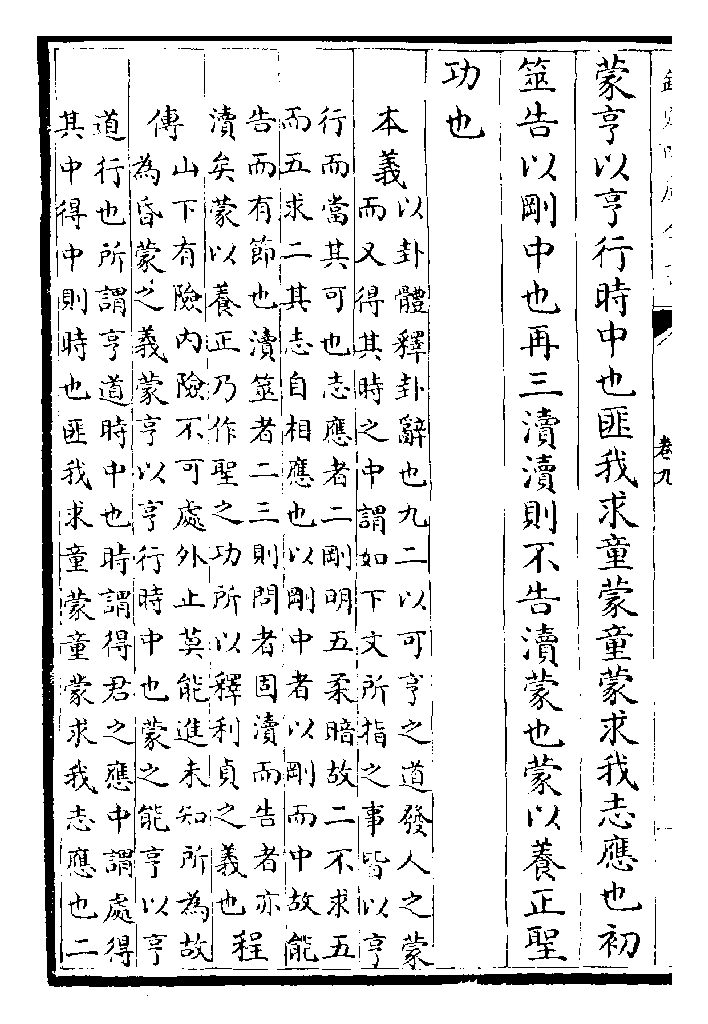 欽定四庫全書
卷九
蒙亨以亨行時中也匪我求童蒙童蒙求我志應也初
筮告以剛中也再三瀆瀆則不告瀆蒙也蒙以養正聖
功也
本義以卦體釋卦辭也九二以可亨之道發人之蒙
而又得其時之中謂如下文所指之事皆以亨
行而當其可也志應者二剛明五柔暗故二不求五
而五求二其志自相應也以剛中者以剛而中故能
告而有節也瀆筮者二三則問者固瀆而告者亦
瀆矣蒙以養正乃作聖之功所以釋利貞之義也程
傳山下有險內險不可處外止莫能進未知所為故
為昏蒙之義蒙亨以亨行時中也蒙之能亨以亨
道行也所謂亨道時中也時謂得君之應中謂處得
其中得中則時也匪我求童蒙童蒙求我志應也二